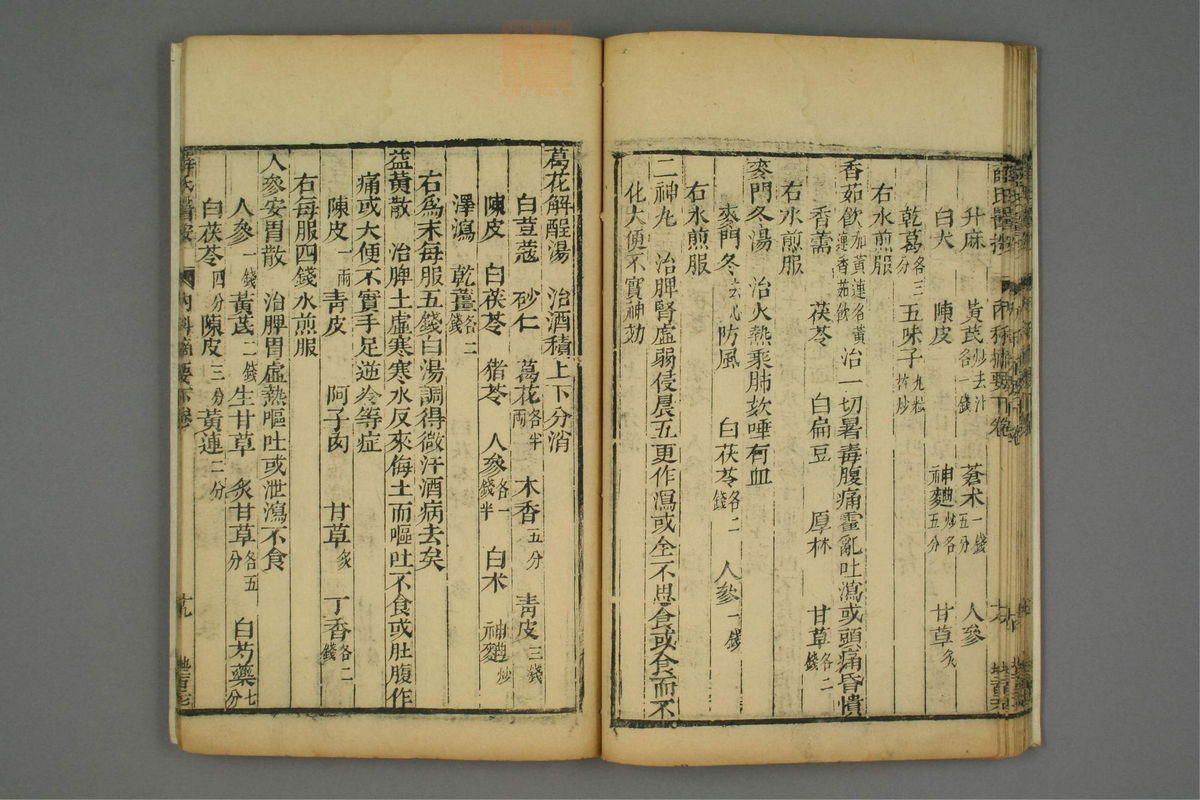 升麻 黃芪炒去汁各一錢 蒼术一錢五分 人參
白朮 陳皮 神麯炒各五分 甘草炙
乾葛各三分 五味子九粒杵炒
右水煎服
香茹飲加黃連名黃連香茹飲 治一切暑毒腹痛霍亂吐瀉或頭痛昏憒
香薷 茯苓 白扁豆 厚朴 甘草各二錢
右水煎服
麥門冬湯 治火熱乘肺欬唾有血
麥門冬去心 防風 白茯苓各二錢 人參一錢
右水煎服
二神丸 治脾腎虛弱侵晨五更作瀉或全不思食或食而不
化大便不實神効
葛花解酲湯 治酒積上下分消
白荳蔻 砂仁 葛花各半兩 木香五分 青皮三錢
陳皮 白茯苓 猪苓 人參各一錢半 白朮 神麯炒
澤瀉 乾薑各二錢
右爲末每服五錢白湯調得微汗酒病去矣
益黃散 治脾土虛寒寒水反來侮土而嘔吐不食或肚腹作
痛或大便不實手足逆冷等症
陳皮一兩 青皮 阿子肉 甘草炙 丁香各二錢
右每服四錢水煎服
人參安胃散 治脾胃虛熱嘔吐或泄瀉不食
人參一錢 黃芪二錢 生甘草 炙甘草各五分 白芍藥七分
白茯苓四分 陳皮三分 黃連二分
薛氏醫按 內科摘要下卷 十九